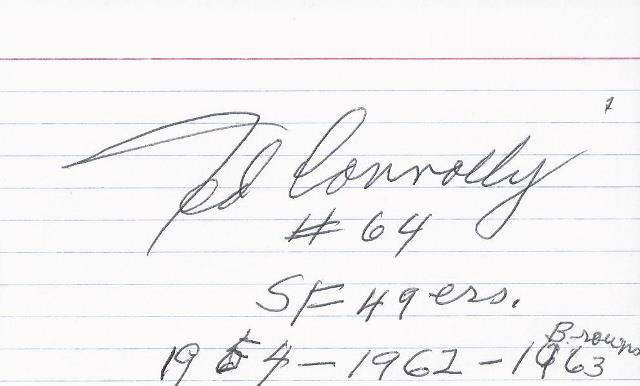 Ted Connolly
# 64
SF 49ers.
1954 - 1962 - 1963 Browns